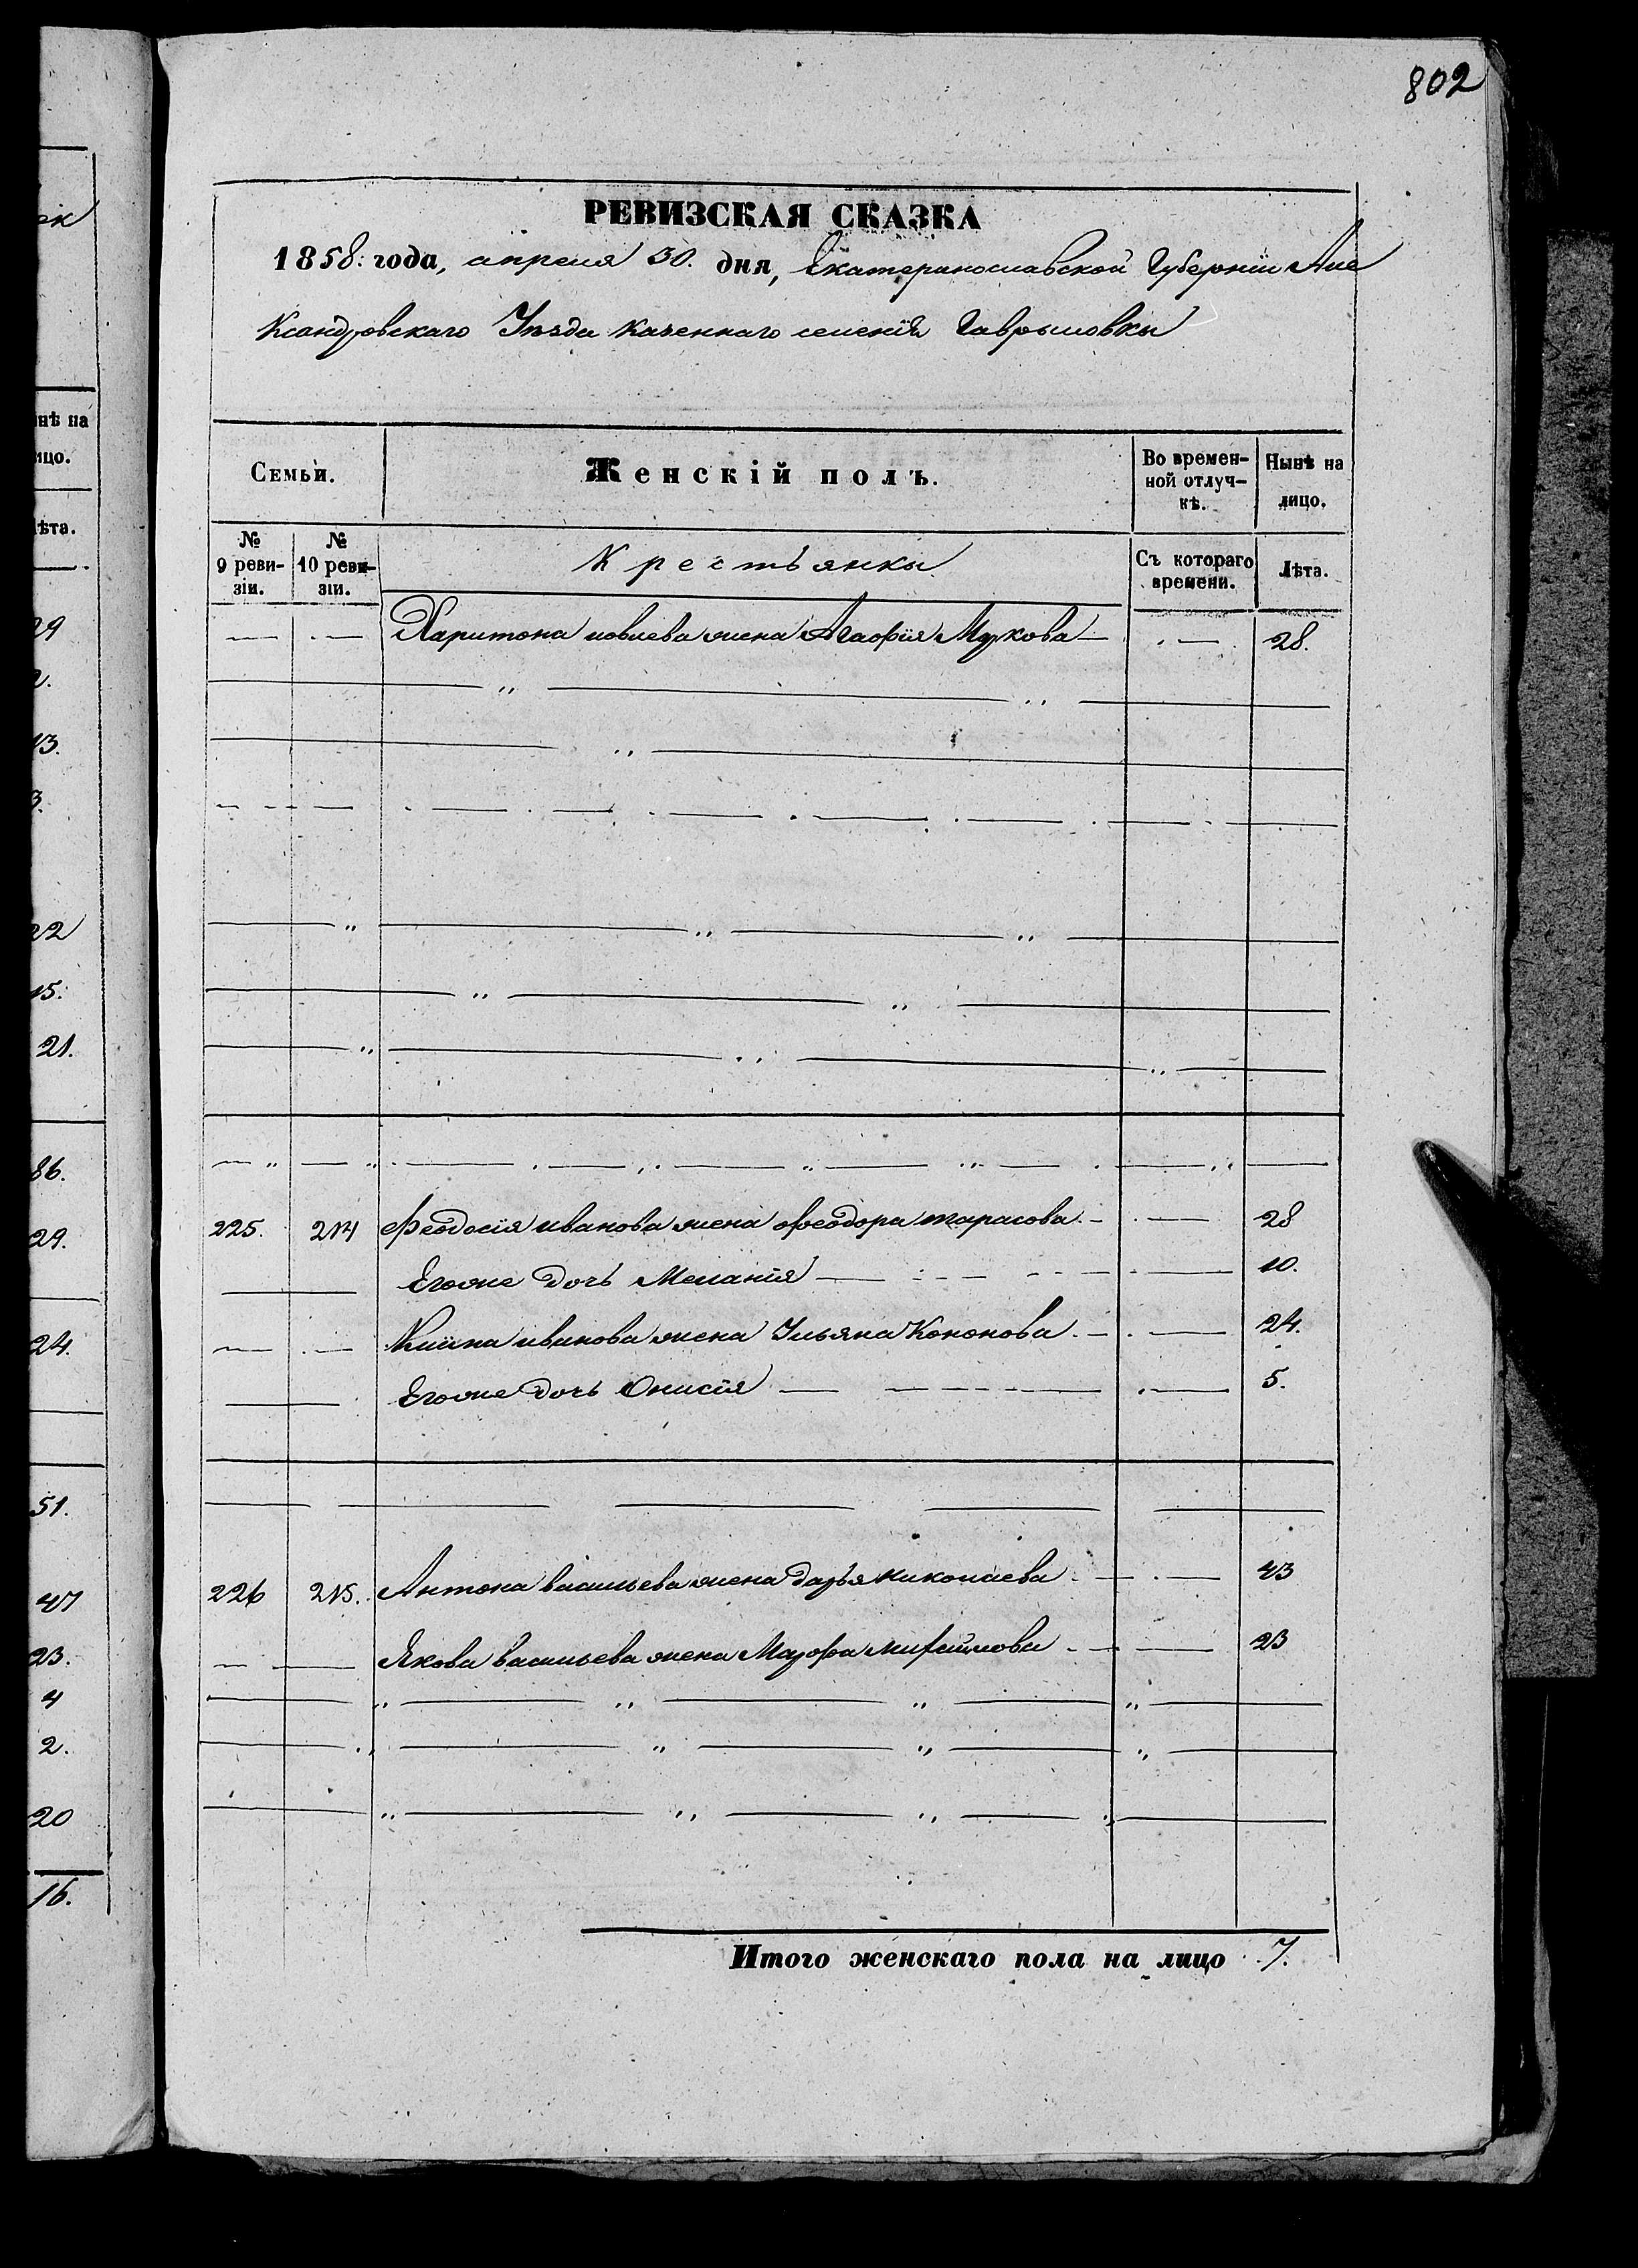 802
РЕВИЗСКАЯ СКАЗКА
1858: года, апреля 30. дня, Екатеринославской Губернiи Але
Ксандровскаго Уѣзда казеннаго селенiя Гаврыловки
Семьи. Женскiй полъ. Во времен- Нынѣ на
ной отлуч- лицо.
кѣ.
№ № Крестьянки Съ котораго Лѣта.
9 реви- 10 реви- времени.
зiи. зiи.
Харитона иовлева жена Агафiя Мужова 28.
225. 214 Феодосiя иванова жена феодора тарасова 28
Егоже дочь Меланiя 10.
иванова жена Ульяна Кононова 24.
Егоже дочь Онисiя 5.
226 215. Антона васильева жена дарья николаева 43
Якова васильева жена Марфа 23
Итого женскаго пола на лицо 7.
нѣ на
ицо.
ѣта.
29
2.
13.
3.
22
15.
21.
86.
29.
24.
51.
47
23.
4
2.
20
16.